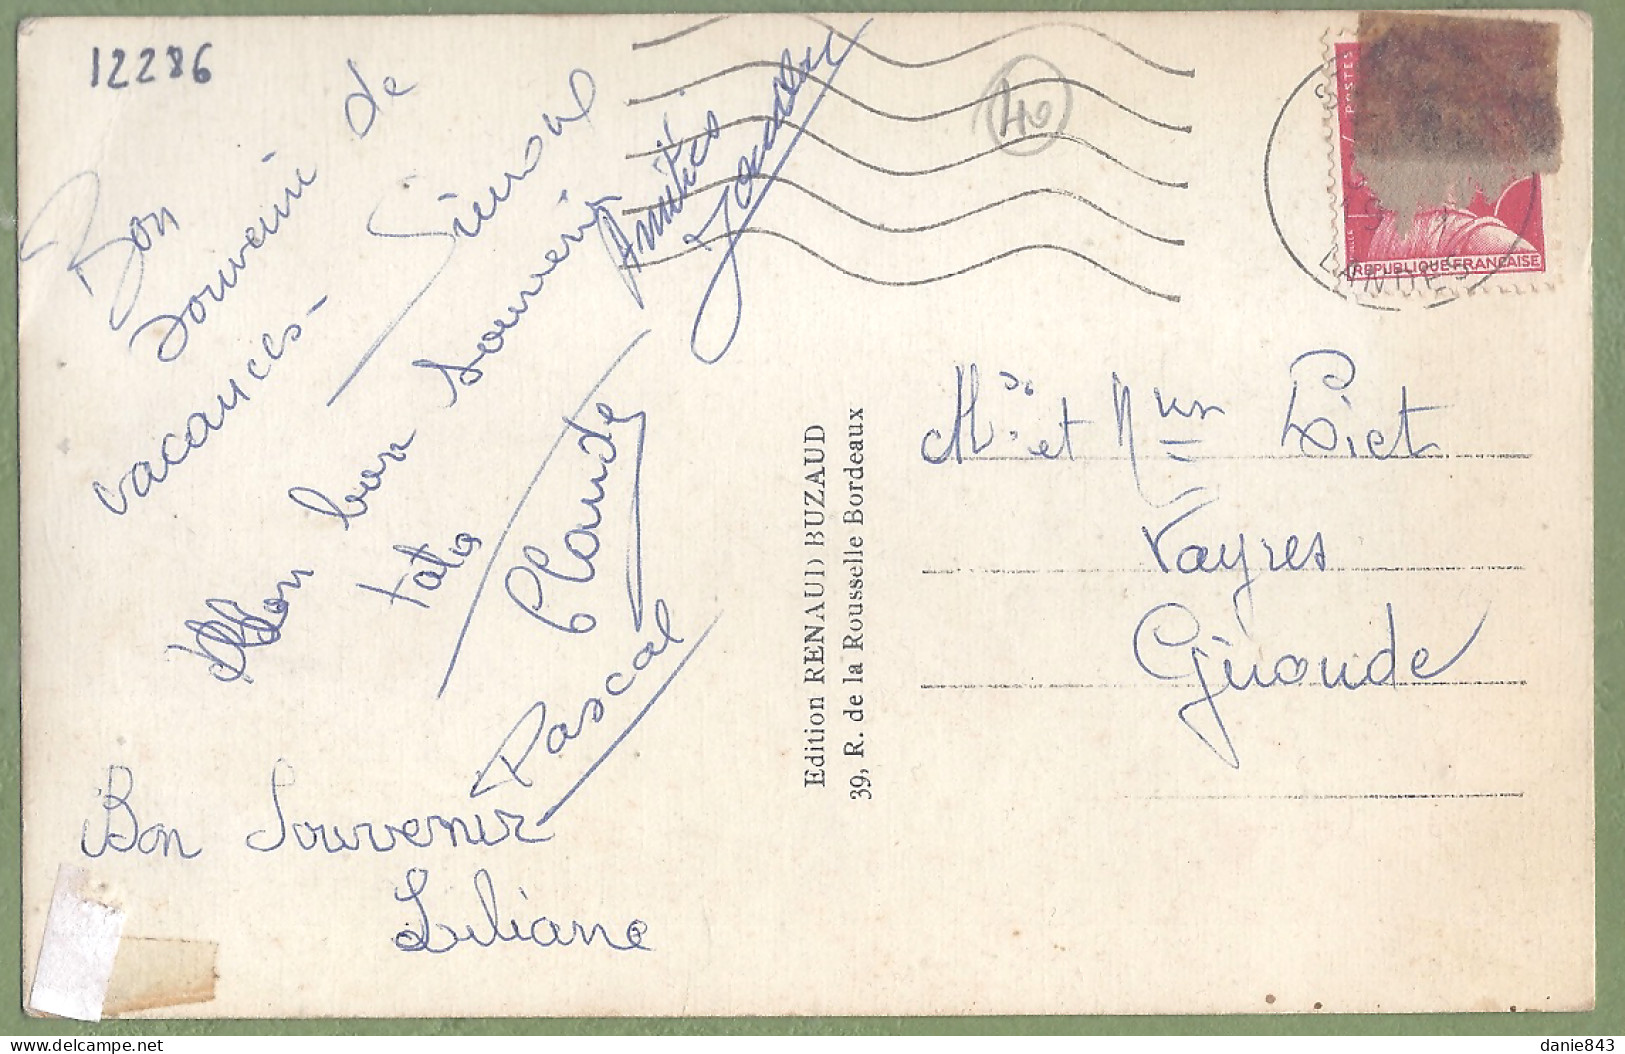 12286
40
Bon
souvenir de
vacances -
Simone
Mon bon souvenir
tata
Amitiés
Claude
Pascal
Bon Souvenir
Liliane
Edition RENAUD BUZAUD
39, R. de la Rousselle Bordeaux
POSTES
REPUBLIQUE FRANÇAISE
LANDES
Mr et Mme Piet
Vayres
Gironde
danie843